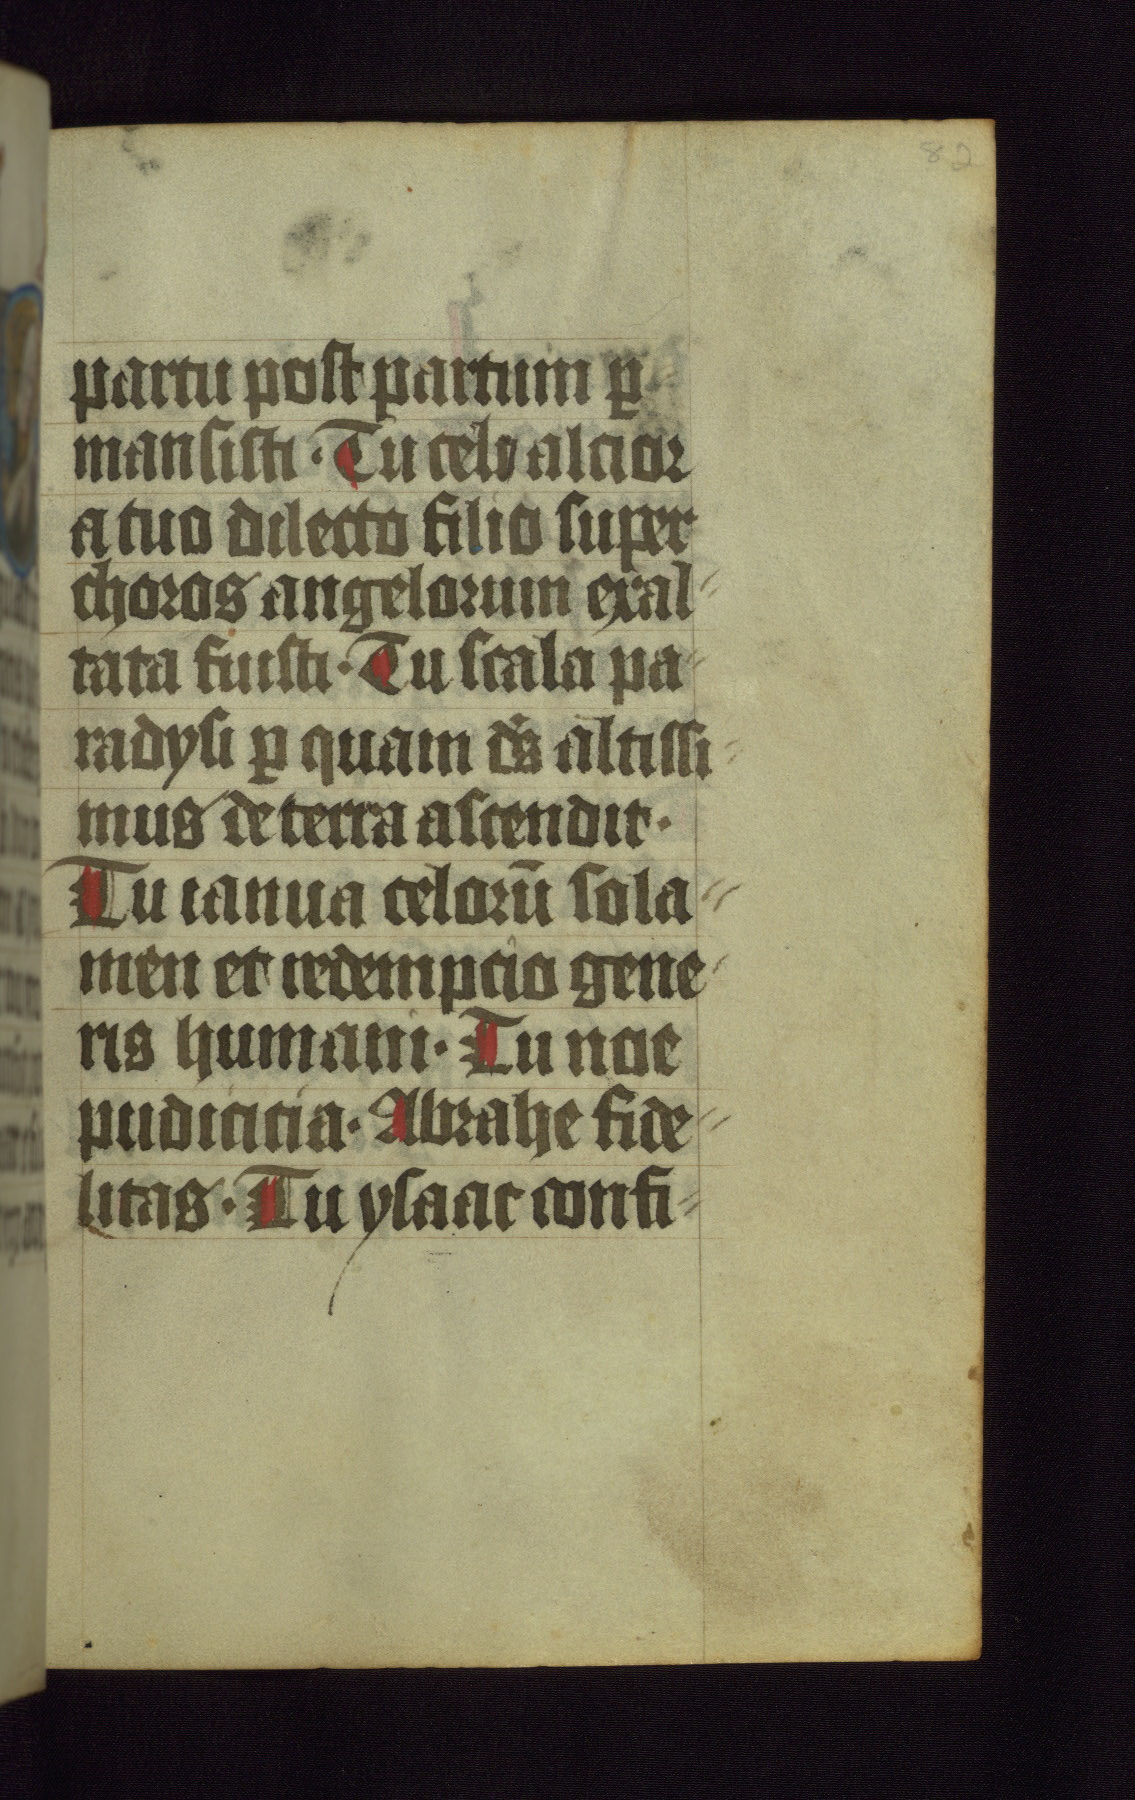 82
partu post partum ꝑ
mansisti · Tu celo alcior
a tuo dilecto filio super
choros angelorum exal⸗
tata fuisti · Tu scala pa⸗
radysi ꝑ quam dn̄s altissi⸗
mus de terra ascendit ·
Tu ianua celorū sola⸗
men et redempcio gene⸗
ris humani · Tu noe
pudicicia · Abrahe fide⸗
litas · Tu ysaac confi⸗